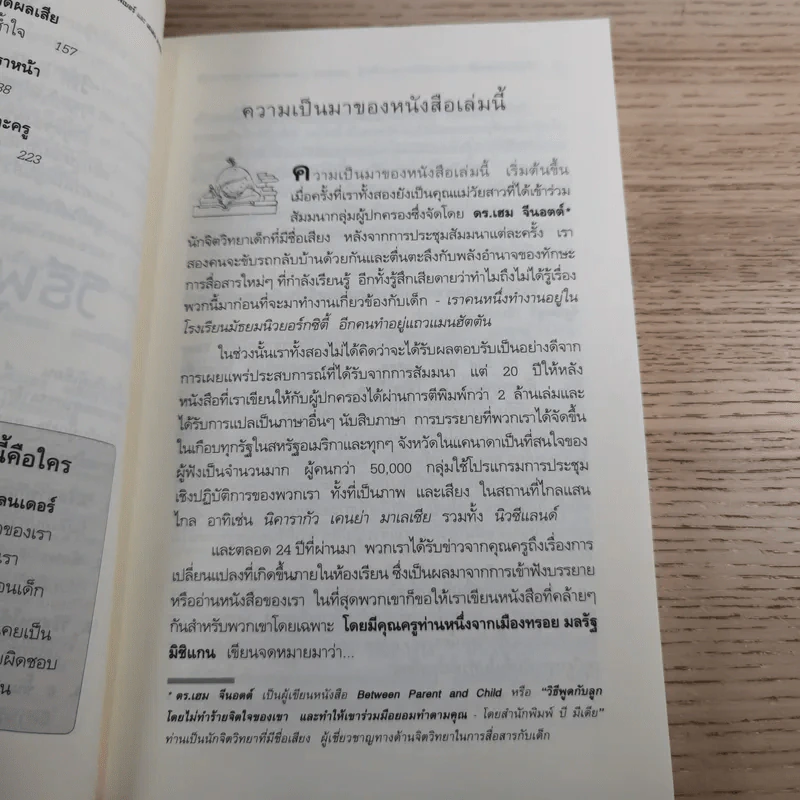 ดผลเสีย
ช้ำใจ
157
าหน้า
38
ละครู
223
นี้คือใคร
ลนเดอร์
ของเรา
เรา
อนเด็ก
คยเป็น
ผิดชอบ
น
ความเป็นมาของหนังสือเล่มนี้
ความเป็นมาของหนังสือเล่มนี้ เริ่มต้นขึ้น
เมื่อครั้งที่เราทั้งสองยังเป็นคุณแม่วัยสาวที่ได้เข้าร่วม
สัมมนากลุ่มผู้ปกครองซึ่งจัดโดย ดร.เฮม จีนอตต์*
นักจิตวิทยาเด็กที่มีชื่อเสียง หลังจากการประชุมสัมมนาแต่ละครั้ง เรา
สองคนจะขับรถกลับบ้านด้วยกันและตื่นตะลึงกับพลังอำนาจของทักษะ
การสื่อสารใหม่ๆ ที่กำลังเรียนรู้ อีกทั้งรู้สึกเสียดายว่าทำไมถึงไม่ได้รู้เรื่อง
พวกนี้มาก่อนที่จะมาทำงานเกี่ยวข้องกับเด็ก - เราคนหนึ่งทำงานอยู่ใน
โรงเรียนมัธยมนิวยอร์กซิตี้ อีกคนทำอยู่แถวแมนฮัตตัน
ในช่วงนั้นเราทั้งสองไม่ได้คิดว่าจะได้รับผลตอบรับเป็นอย่างดีจาก
การเผยแพร่ประสบการณ์ที่ได้รับจากการสัมมนา แต่ 20 ปีให้หลัง
หนังสือที่เราเขียนให้กับผู้ปกครองได้ผ่านการตีพิมพ์กว่า 2 ล้านเล่มและ
ได้รับการแปลเป็นภาษาอื่นๆ นับสิบภาษา การบรรยายที่พวกเราได้จัดขึ้น
ในเกือบทุกรัฐในสหรัฐอเมริกาและทุกๆ จังหวัดในแคนาดาเป็นที่สนใจของ
ผู้ฟังเป็นจำนวนมาก ผู้คนกว่า 50,000 กลุ่มใช้โปรแกรมการประชุม
เชิงปฏิบัติการของพวกเรา ทั้งที่เป็นภาพ และเสียง ในสถานที่ไกลแสน
ไกล อาทิเช่น นิคารากัว เคนย่า มาเลเซีย รวมทั้ง นิวซีแลนด์
และตลอด 24 ปีที่ผ่านมา พวกเราได้รับข่าวจากคุณครูถึงเรื่องการ
เปลี่ยนแปลงที่เกิดขึ้นภายในห้องเรียน ซึ่งเป็นผลมาจากการเข้าฟังบรรยาย
หรืออ่านหนังสือของเรา ในที่สุดพวกเขาก็ขอให้เราเขียนหนังสือที่คล้ายๆ
กันสำหรับพวกเขาโดยเฉพาะ โดยมีคุณครูท่านหนึ่งจากเมืองทรอย มลรัฐ
มิชิแกน เขียนจดหมายมาว่า...
* ดร.เฮม จีนอตต์ เป็นผู้เขียนหนังสือ Between Parent and Child หรือ "วิธีพูดกับลูก
โดยไม่ทำร้ายจิตใจของเขา และทำให้เขาร่วมมือยอมทำตามคุณ - โดยสำนักพิมพ์ บี มีเดีย"
ท่านเป็นนักจิตวิทยาที่มีชื่อเสียง ผู้เชี่ยวชาญทางด้านจิตวิทยาในการสื่อสารกับเด็ก